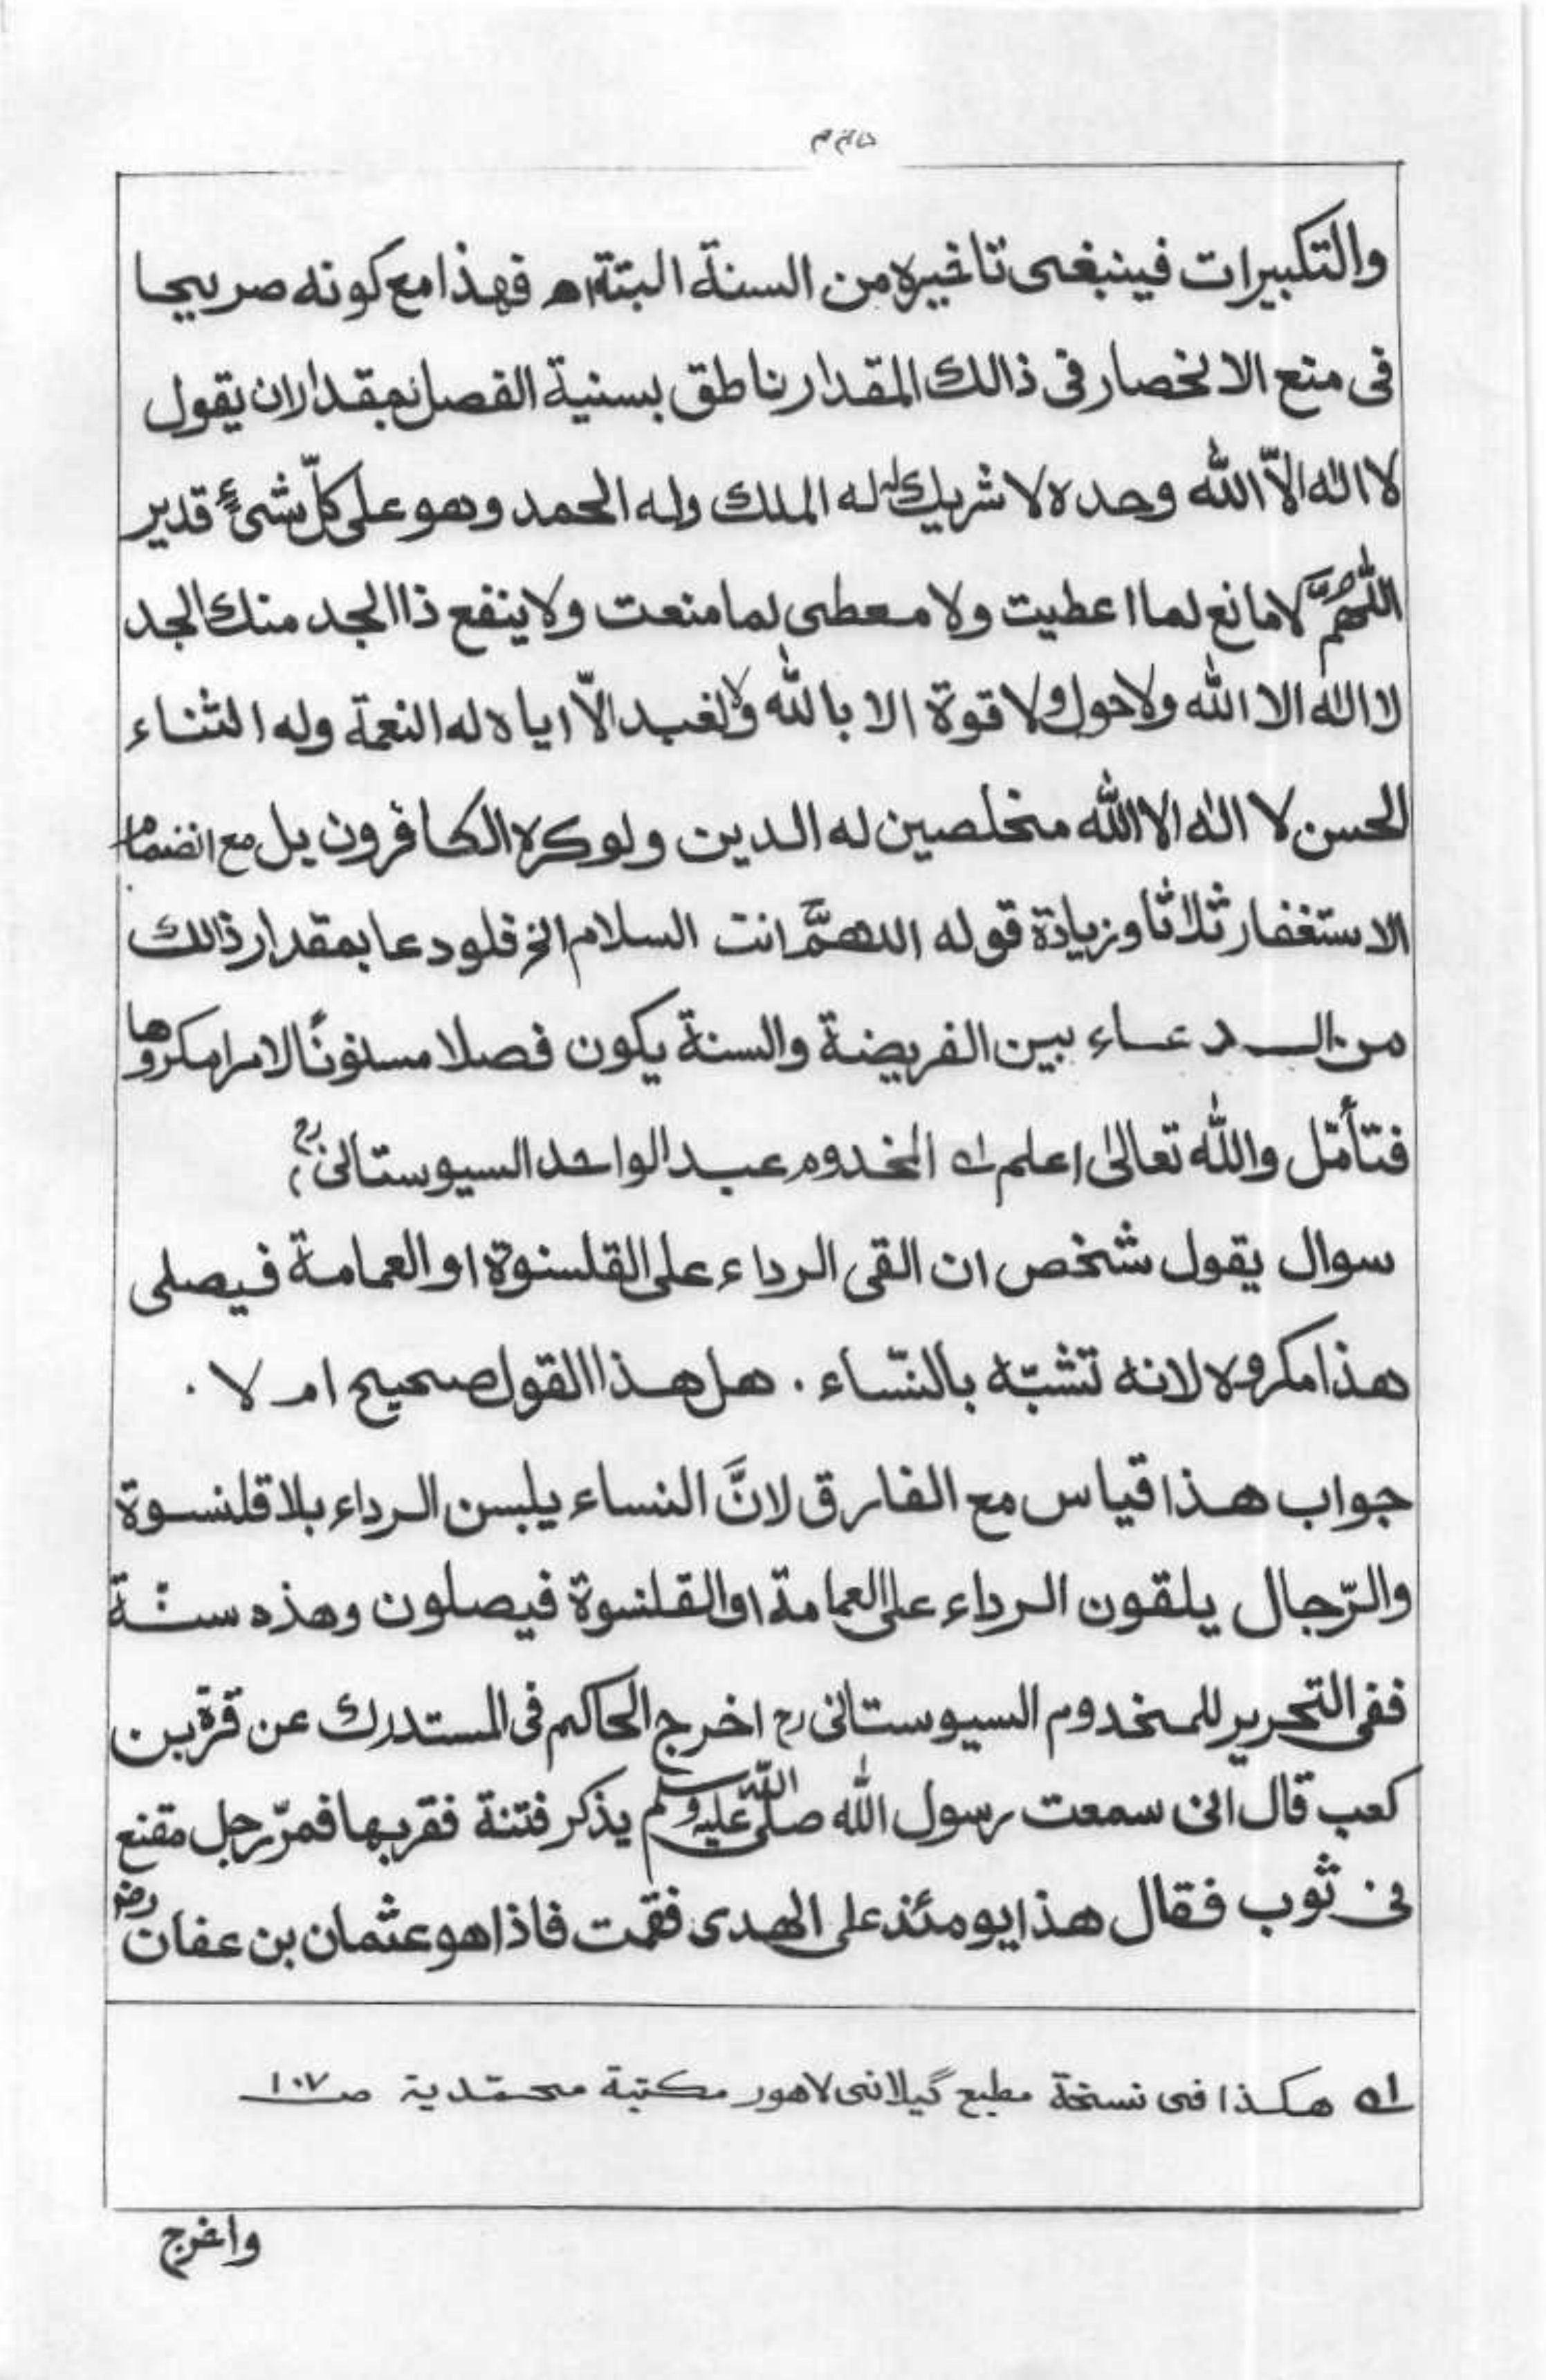 والتكبيرات فينبغى تاخيره من السنة البتة اه فهذا مع كونه صريحا
فى منع الانحصار فى ذالك المقدار ناطق بسنية الفصل بمقدار ان يقول
لا اله الّا الله وحده لا شريك له له الملك وله الحمد وهو على كلّ شئٍ قدير
اللّٰهُمَّ لا مانع لما اعطيت ولا معطى لما منعت ولا ينفع ذا الجد منك الجد
لا اله الا الله ولا حول ولا قوة الا بالله ولا نعبد الّا اياه له النعمة وله الثناء
الحسن لا اله الا الله مخلصين له الدين ولو كره الكافرون بل مع انضمام
الاستغفار ثلاثا وزيادة قوله اللهمَّ انت السلام الخ فلو دعا بمقدار ذالك
من الدعاء بين الفريضة والسنة يكون فصلا مسنونًا لا امرا مكروها
فتأمّل والله تعالىٰ اعلم له المخدوم عبد الواحد السيوستانى رح؛
سوال يقول شخص ان القى الرداء على القلنسوة او العمامة فيصلى
هذا مكروه لانه تشبّه بالنّساء. هل هذا القول صحيح ام لا.
جواب هذا قياس مع الفارق لانَّ النساء يلبسن الرداء بلا قلنسوة
والرّجال يلقون الرداء على العمامة او القلنسوة فيصلون وهذه سنّة
ففى التحرير للمخدوم السيوستانى رح اخرج الحاكم فى المستدرك عن قرة بن
كعب قال انى سمعت رسول الله صلى الله عليه وسلم يذكر فتنة فقربها فمرّ رجل مقنع
فى ثوب فقال هذا يومئذ على الهدى فقمت فاذا هو عثمان بن عفان رضـ
له هكذا فى نسخة مطبع گيلانى لاهور مكتبة محمّدية صـ ١٠٧
واخرج